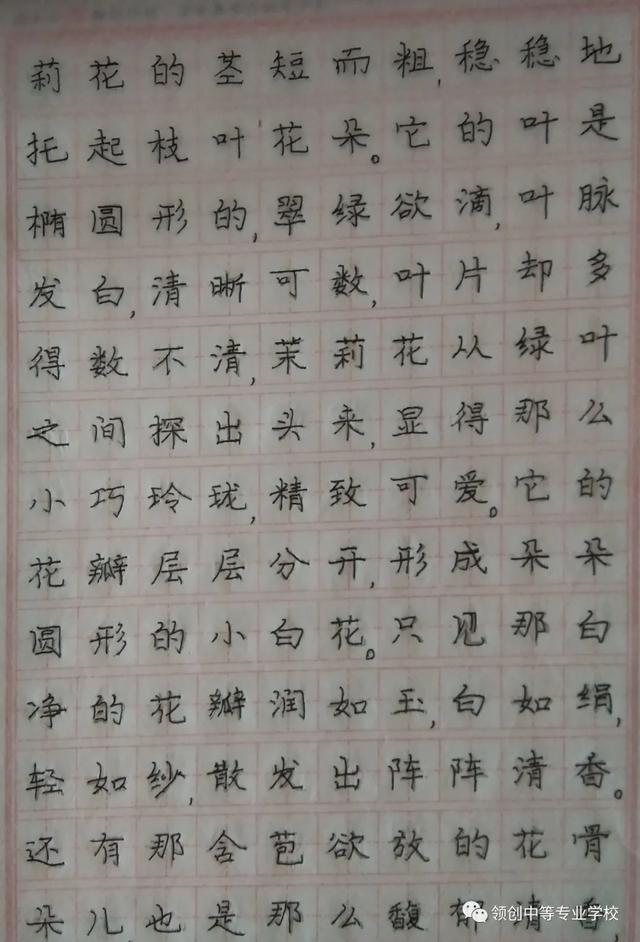 莉花的茎短而粗,稳稳地
托起枝叶花朵。它的叶是
椭圆形的,翠绿欲滴,叶脉
发白,清晰可数,叶片却多
得数不清,茉莉花从绿叶
之间探出头来,显得那么
小巧玲珑,精致可爱。它的
花瓣层层分开,形成朵朵
圆形的小白花。只见那白
净的花瓣润如玉,白如绢,
轻如纱,散发出阵阵清香。
还有那含苞欲放的花骨
朵儿,也是那么馥郁清香
领创中等专业学校